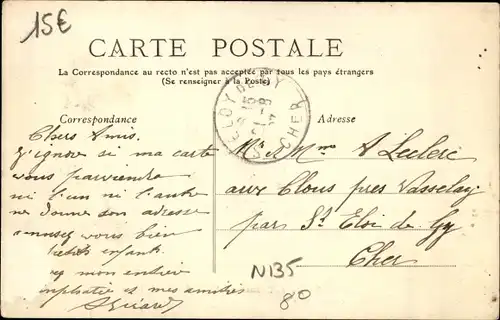 15€
CARTE POSTALE
La Correspondance au recto n'est pas acceptée par tous les pays étrangers
(Se renseigner à la Poste)
Correspondance
Adresse
CHER
Chers Amis.
J'ignore si ma carte
vous parviendra
ni l'un ni l'autre
ne donne son adresse
amusez vous bien
petits enfants
mon entière
et mes amitiés
Mr et Mme A Leclerc
aux Clous près Vasselay
par St Eloi de Gy
Cher
N135
80